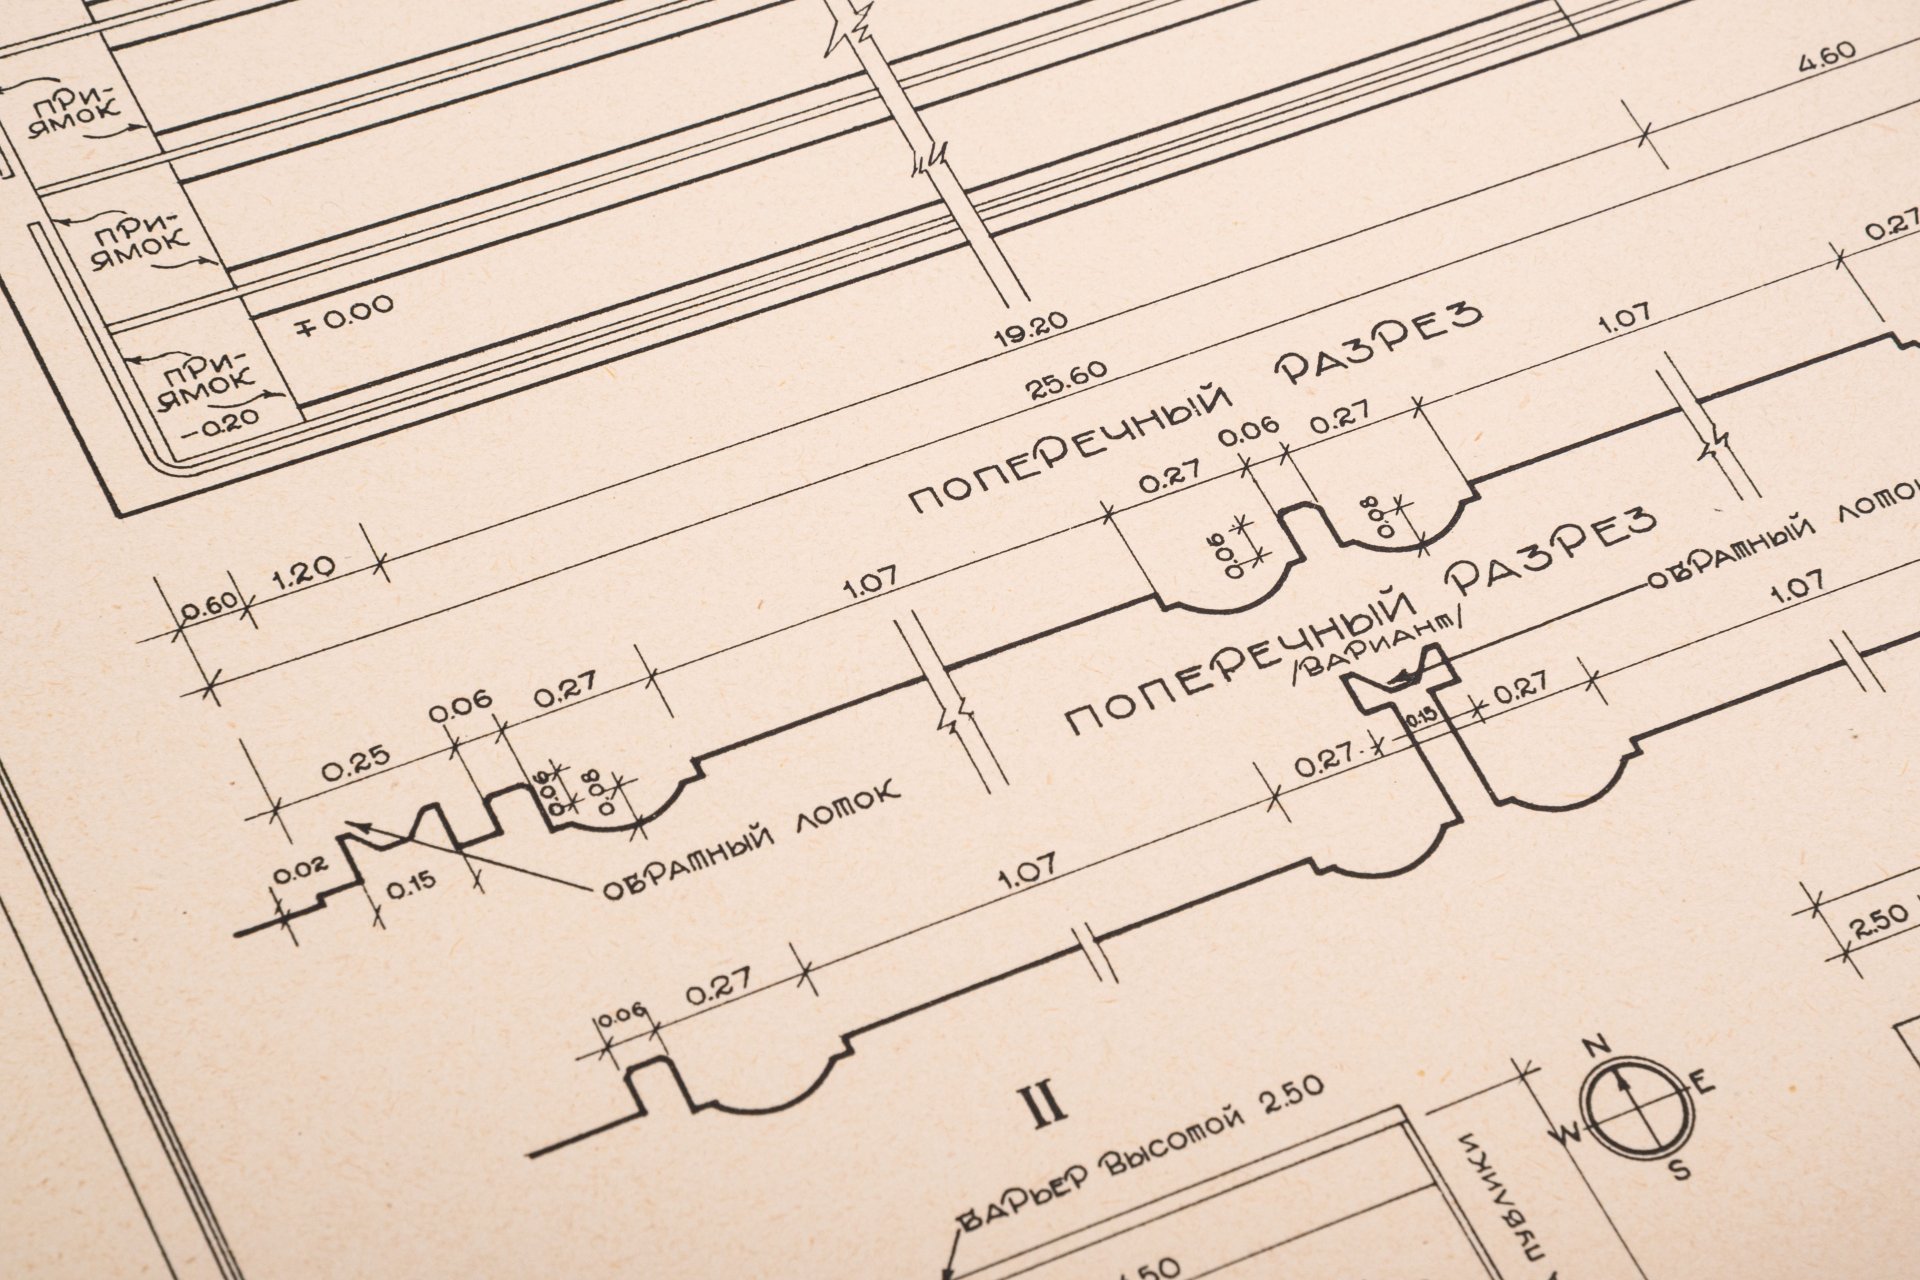 ПРИ-
ЯМОК
ПРИ-
ЯМОК
∓0.00
ПРИ-
ЯМОК
-0.20
4.60
19.20
25.60
0.60
1.20
ПОПЕРЕЧНЫЙ РАЗРЕЗ
0.25
0.06
0.27
1.07
0.27
0.06
0.27
1.07
0.27
0.06
0.08
0.06
0.08
0.02
0.15
ОБРАТНЫЙ ЛОТОК
ПОПЕРЕЧНЫЙ РАЗРЕЗ
/ВАРИАНТ/
ОБРАТНЫЙ ЛОТОК
0.06
0.27
1.07
0.27
0.15
0.27
1.07
2.50
II
БАРЬЕР ВЫСОТОЙ 2.50
N
E
W
S